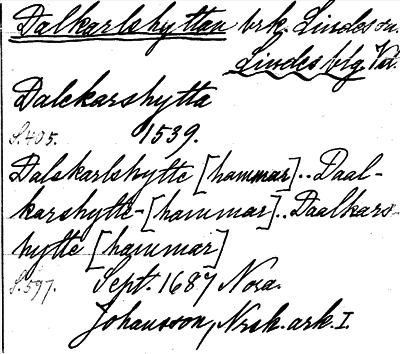 Dalkarlshyttan brk. Lindes sn.
Lindes blg Vstm.
Dalekarshytta
S. 405. 1539.
Dalskarlshytte [hammar].. Daal-
karshytte-[hammar].. Daalkars-
hytte [hammar]
S. 597. Sept. 1687 Nora.
Johansson, Nrsk. ark. I.